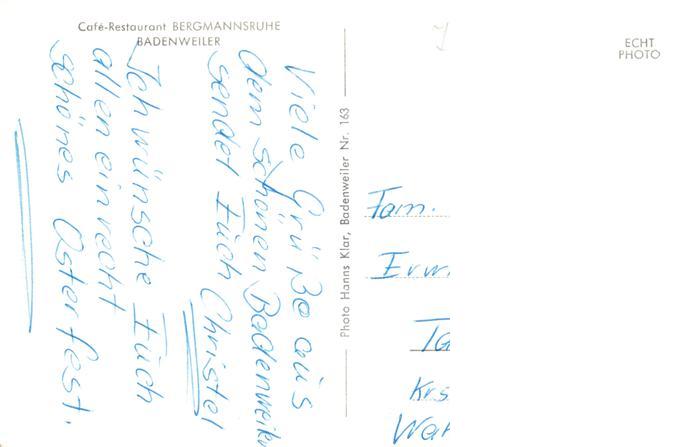 Café-Restaurant BERGMANNSRUHE
BADENWEILER
ECHT
PHOTO
Viele Grüße aus
dem schönen Badenweiler
sendet Euch Christel
Ich wünsche Euch
allen ein recht
schönes Osterfest.
Photo Hanns Klar, Badenweiler Nr. 163
Fam.
Erw
Krs